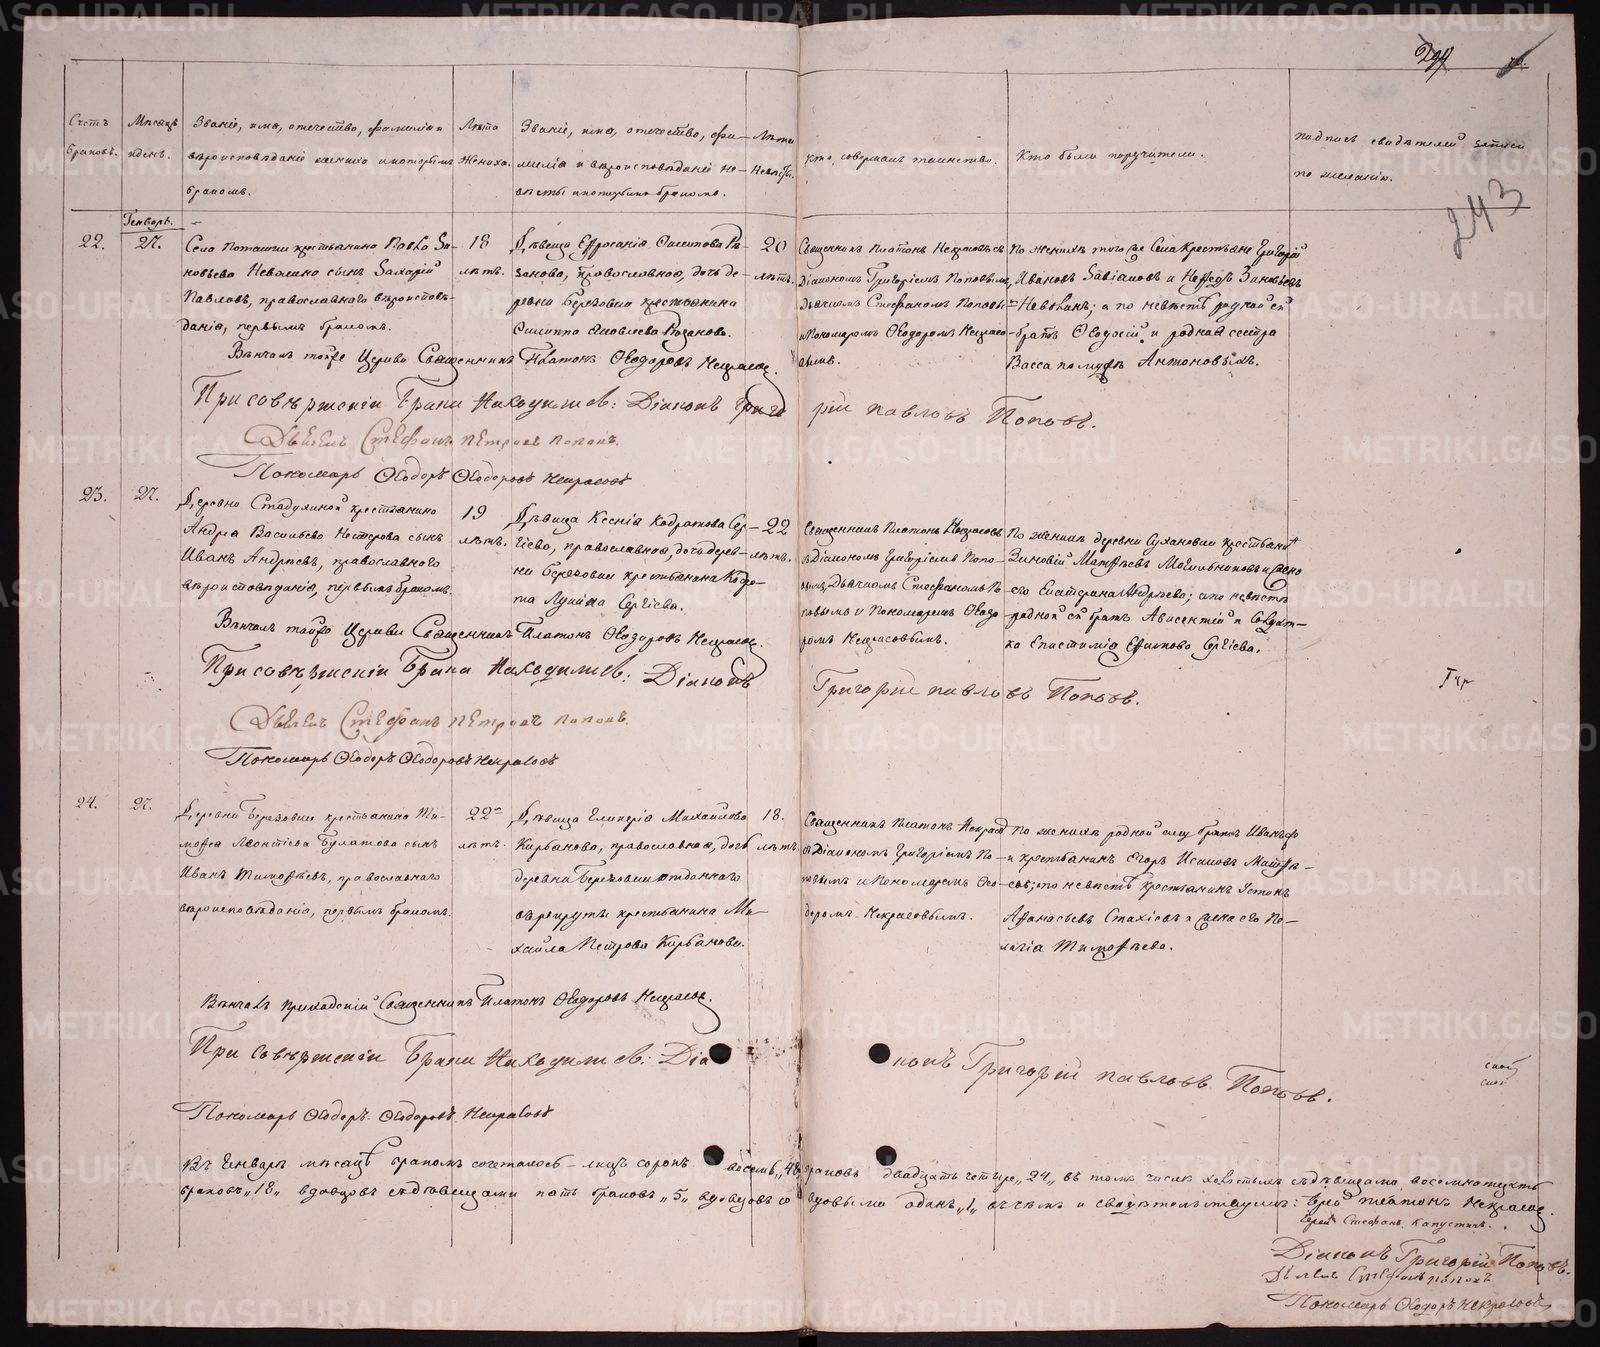 294
243
Счетъ браковъ.
Мѣсяцъ и день.
Званіе, имя, отечество, фамилія и
вѣроисповѣданіе жениха и которымъ
бракомъ.
Лѣта
жениха.
Званіе, имя, отечество, фа-
милія и вѣроисповѣданіе не-
вѣсты и которымъ бракомъ.
Лѣта
Невѣсты.
Кто совершалъ таинство.
Кто были поручители.
подпись свидѣтелей записи
по желанію.
Генварь.
22.
27.
Села Поташки крестьянина Павла Зи-
новьева Неволина сынъ Захарій
Павловъ, православнаго вѣроисповѣ-
данія, первымъ бракомъ.
18
лѣтъ.
Дѣвица Евфросинія Филипова Ря-
занова, православная, дочь де-
ревни Березовки крестьянина
Филиппа Яковлева Рязанова.
20
лѣтъ.
Священникъ Платонъ Некрасовъ съ
Діакономъ Григоріемъ Поповымъ,
Дьячкомъ Стефаномъ Поповы-
и Пономаремъ Ѳеодоромъ Некрасо-
вымъ.
По женихѣ того же Села Крестьяне Григорій
Ивановъ и Зиновьевъ
Неволинъ; а по невѣстѣ родной ея
братъ Ѳеодосій и родная сестра
Васса по мужѣ Антоновыхъ.
Вѣнчалъ Церкви Священникъ Платонъ Ѳеодоровъ Некрасовъ.
При совѣршеніи Брака Находился: Діаконъ Григо
рій павловъ Поповъ.
Дьячекъ Стефанъ Петровъ Поповъ.
Пономарь Ѳеодоръ Ѳеодоровъ Некрасовъ
23.
27.
Деревни Стадухиной крестьянина
Андрея Васильева Нестерова сынъ
Иванъ Андреевъ, православнаго
вѣроисповѣданія, первымъ бракомъ.
19
лѣтъ.
Дѣвица Ксенія Кодратова Сер-
гіева, православная, дочь дерев-
ни Березовки крестьянина Кодра-
та Лукина Сергіева.
22
лѣтъ.
Священникъ Платонъ Некрасовъ
съ Діакономъ Григоріемъ Попо-
вымъ, Дьячкомъ Стефаномъ По-
повымъ и Пономаремъ Ѳеодо-
ромъ Некрасовымъ.
По женихѣ деревни Сухановки крестьянинъ
Зиновій Матвѣевъ Могильниковъ и жена
его Екатерина Андреева; а по невѣстѣ
родной ея братъ Авксентій и Солдат-
ка Епистимія Ефимова Сергіева.
Вѣнчалъ Церкви Священникъ Платонъ Ѳеодоровъ Некрасовъ.
При совѣршеніи Брака Находился: Діаконъ
Григорій павловъ Поповъ.
Дьячекъ Стефанъ Петровъ Поповъ.
Пономарь Ѳеодоръ Ѳеодоровъ Некрасовъ
24.
27.
Деревни Березовки крестьянина Ти-
мофея Леонтіева Булатова сынъ
Иванъ Тимофѣевъ, православнаго
вѣроисповѣданія, первымъ бракомъ.
22
лѣтъ.
Дѣвица Гликерія Михайлова
Курбанова, православная, дочь
деревни Березовки отданнаго
въ рекруты крестьянина Ми-
хайла Петрова Курбанова.
18.
лѣтъ.
Священникъ Платонъ Некрасовъ
съ Діакономъ Григоріемъ По-
повымъ и Пономаремъ Ѳео-
доромъ Некрасовымъ.
По женихѣ родной ему братъ Иванъ
и крестьянинъ Егоръ Исаковъ Матвѣ-
евъ; по невѣстѣ крестьянинъ Устинъ
Афанасьевъ Стахіевъ и жена его Пе-
лагія Тимофѣева.
Вѣнчалъ приходскій Священникъ Платонъ Ѳеодоровъ Некрасовъ.
При Совѣршеніи Брака Находился: Діа
конъ Григорій павловъ Поповъ.
Пономарь Ѳеодоръ Ѳеодоровъ Некрасовъ
Въ Генварѣ мѣсяцѣ бракомъ сочеталось лицъ сорокъ восемь „48 браковъ двадцать четыре „24„ въ томъ числѣ холостыхъ съ дѣвицами восемнадцать
браковъ „18„ вдовцовъ съ дѣвицами пять браковъ „5„ вдовцовъ со вдовыми одинъ „1„ въ чемъ и свидѣтельствуемъ: Іерей Платонъ Некрасовъ.
Іерей Стефанъ Капустинъ.
Діаконъ Григорій Поповъ.
Дьячекъ Стефанъ Поповъ
Пономарь Ѳеодоръ Некрасовъ
METRIKI.GASO-URAL.RU